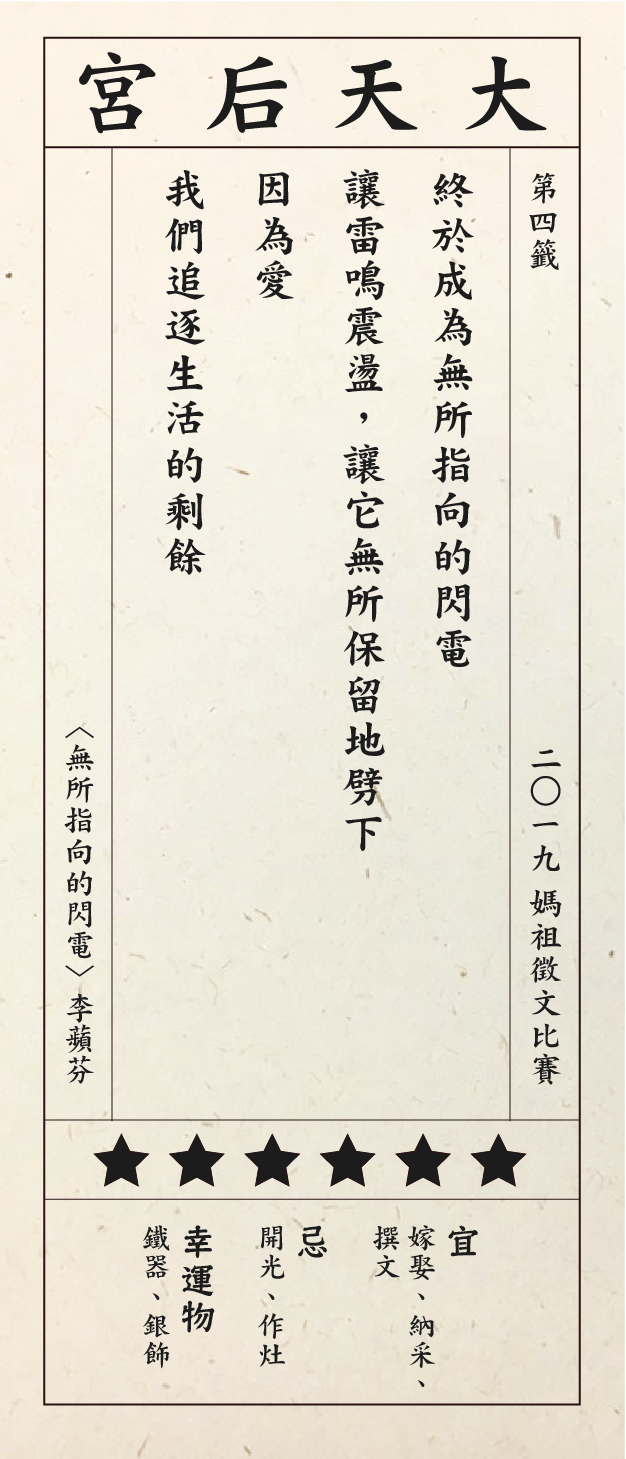 大天后宮
第四籤
二〇一九 媽祖徵文比賽
終於成為無所指向的閃電
讓雷鳴震盪，讓它無所保留地劈下
因為愛
我們追逐生活的剩餘
〈無所指向的閃電〉李蘋芬
★★★★★★
宜
嫁娶、納采、
撰文
忌
開光、作灶
幸運物
鐵器、銀飾